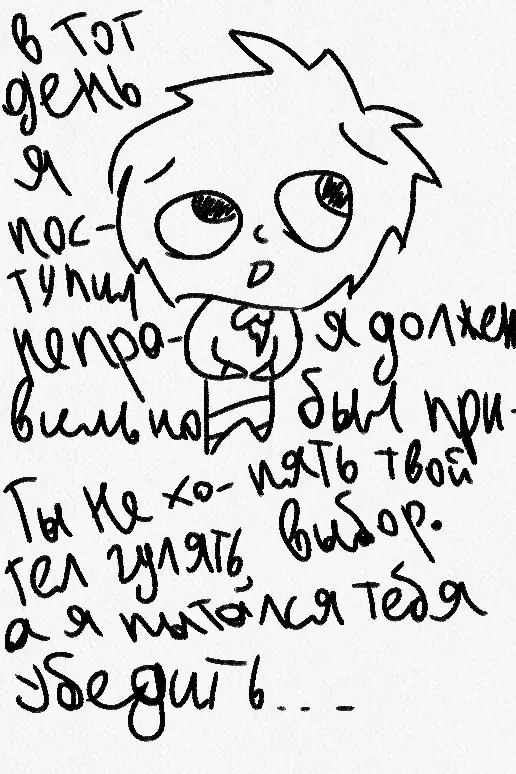 в тот
день
я
пос-
тупил
непра-
вильно
я должен
был при-
нять твой
выбор.
Ты не хо-
тел гулять,
а я пытался тебя
убедить....